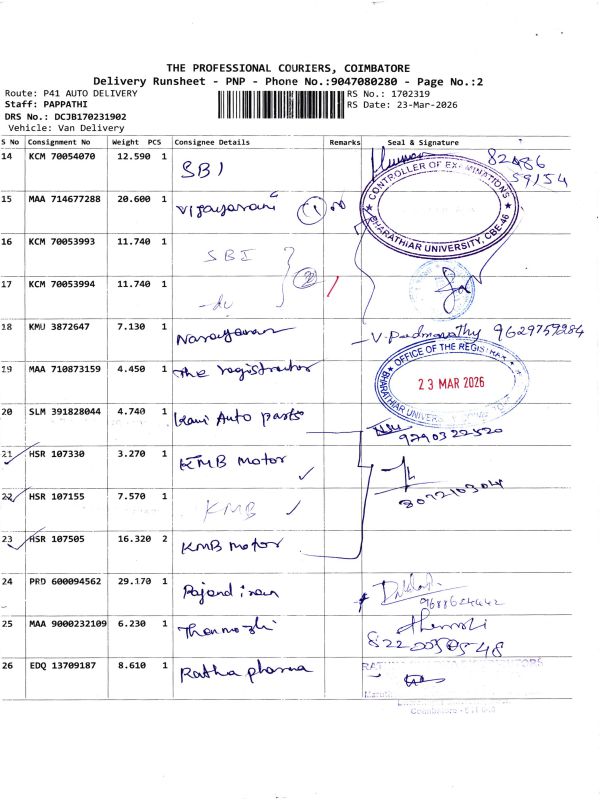 THE PROFESSIONAL COURIERS, COIMBATORE
Delivery Runsheet - PNP - Phone No.:9047080280 - Page No.:2
Route: P41 AUTO DELIVERY
RS No.: 1702319
Staff: PAPPATHI
RS Date: 23-Mar-2026
DRS No.: DCJB170231902
Vehicle: Van Delivery
S No Consignment No Weight PCS Consignee Details Remarks Seal & Signature
14 KCM 70054070 12.590 1 SBI
59154
CONTROLLER OF EXAMINATIONS
BHARATHIAR UNIVERSITY, CBE-46
15 MAA 714677288 20.600 1 Vijayarani 1
16 KCM 70053993 11.740 1 SBI
2
17 KCM 70053994 11.740 1 -do
18 KMU 3872647 7.130 1 Narayanan V. Padmavathy 9629759284
19 MAA 710873159 4.450 1 The registrator
OFFICE OF THE REGISTRAR
23 MAR 2026
BHARATHIAR UNIVERSITY
20 SLM 391828044 4.740 1 Kani Auto parts
9790322520
21 HSR 107330 3.270 1 KMB motor
22 HSR 107155 7.570 1 KMB
807210304
23 HSR 107505 16.320 2 KMB motor
24 PRD 600094562 29.170 1
9688624442
25 MAA 9000232109 6.230 1 Thenmozhi
8220050548
26 EDQ 13709187 8.610 1 Ratha pharma